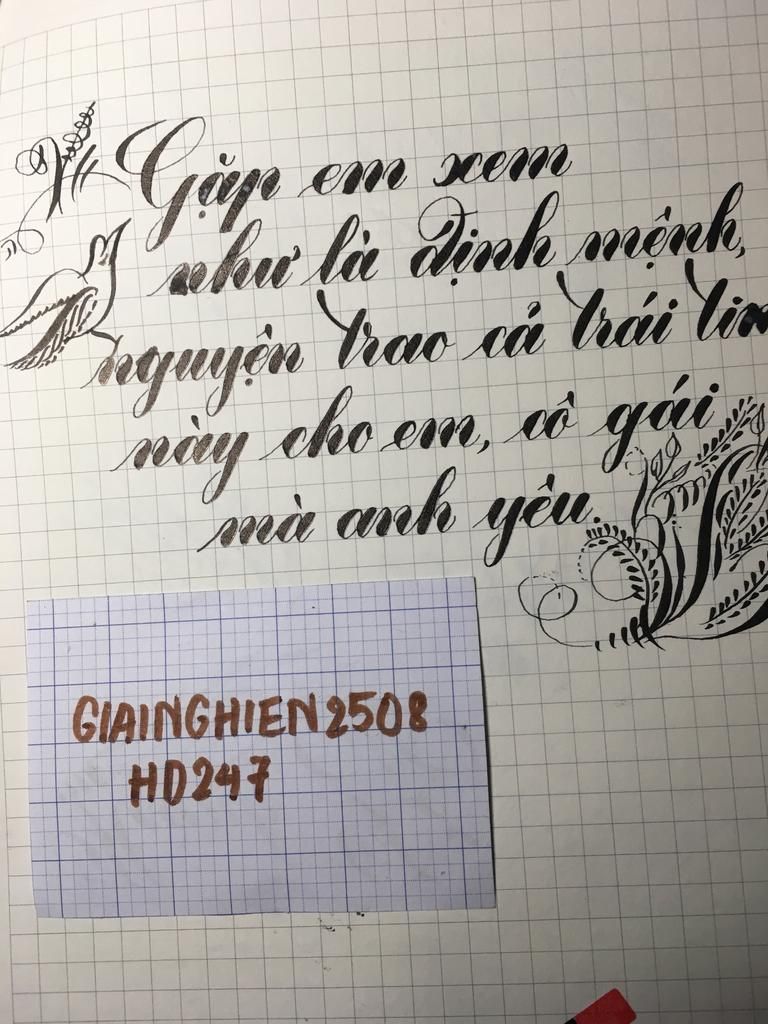 Gặp em xem
như là định mệnh,
nguyện trao cả trái tim
này cho em, cô gái
mà anh yêu.
GIAINGHIEN2508
HD247